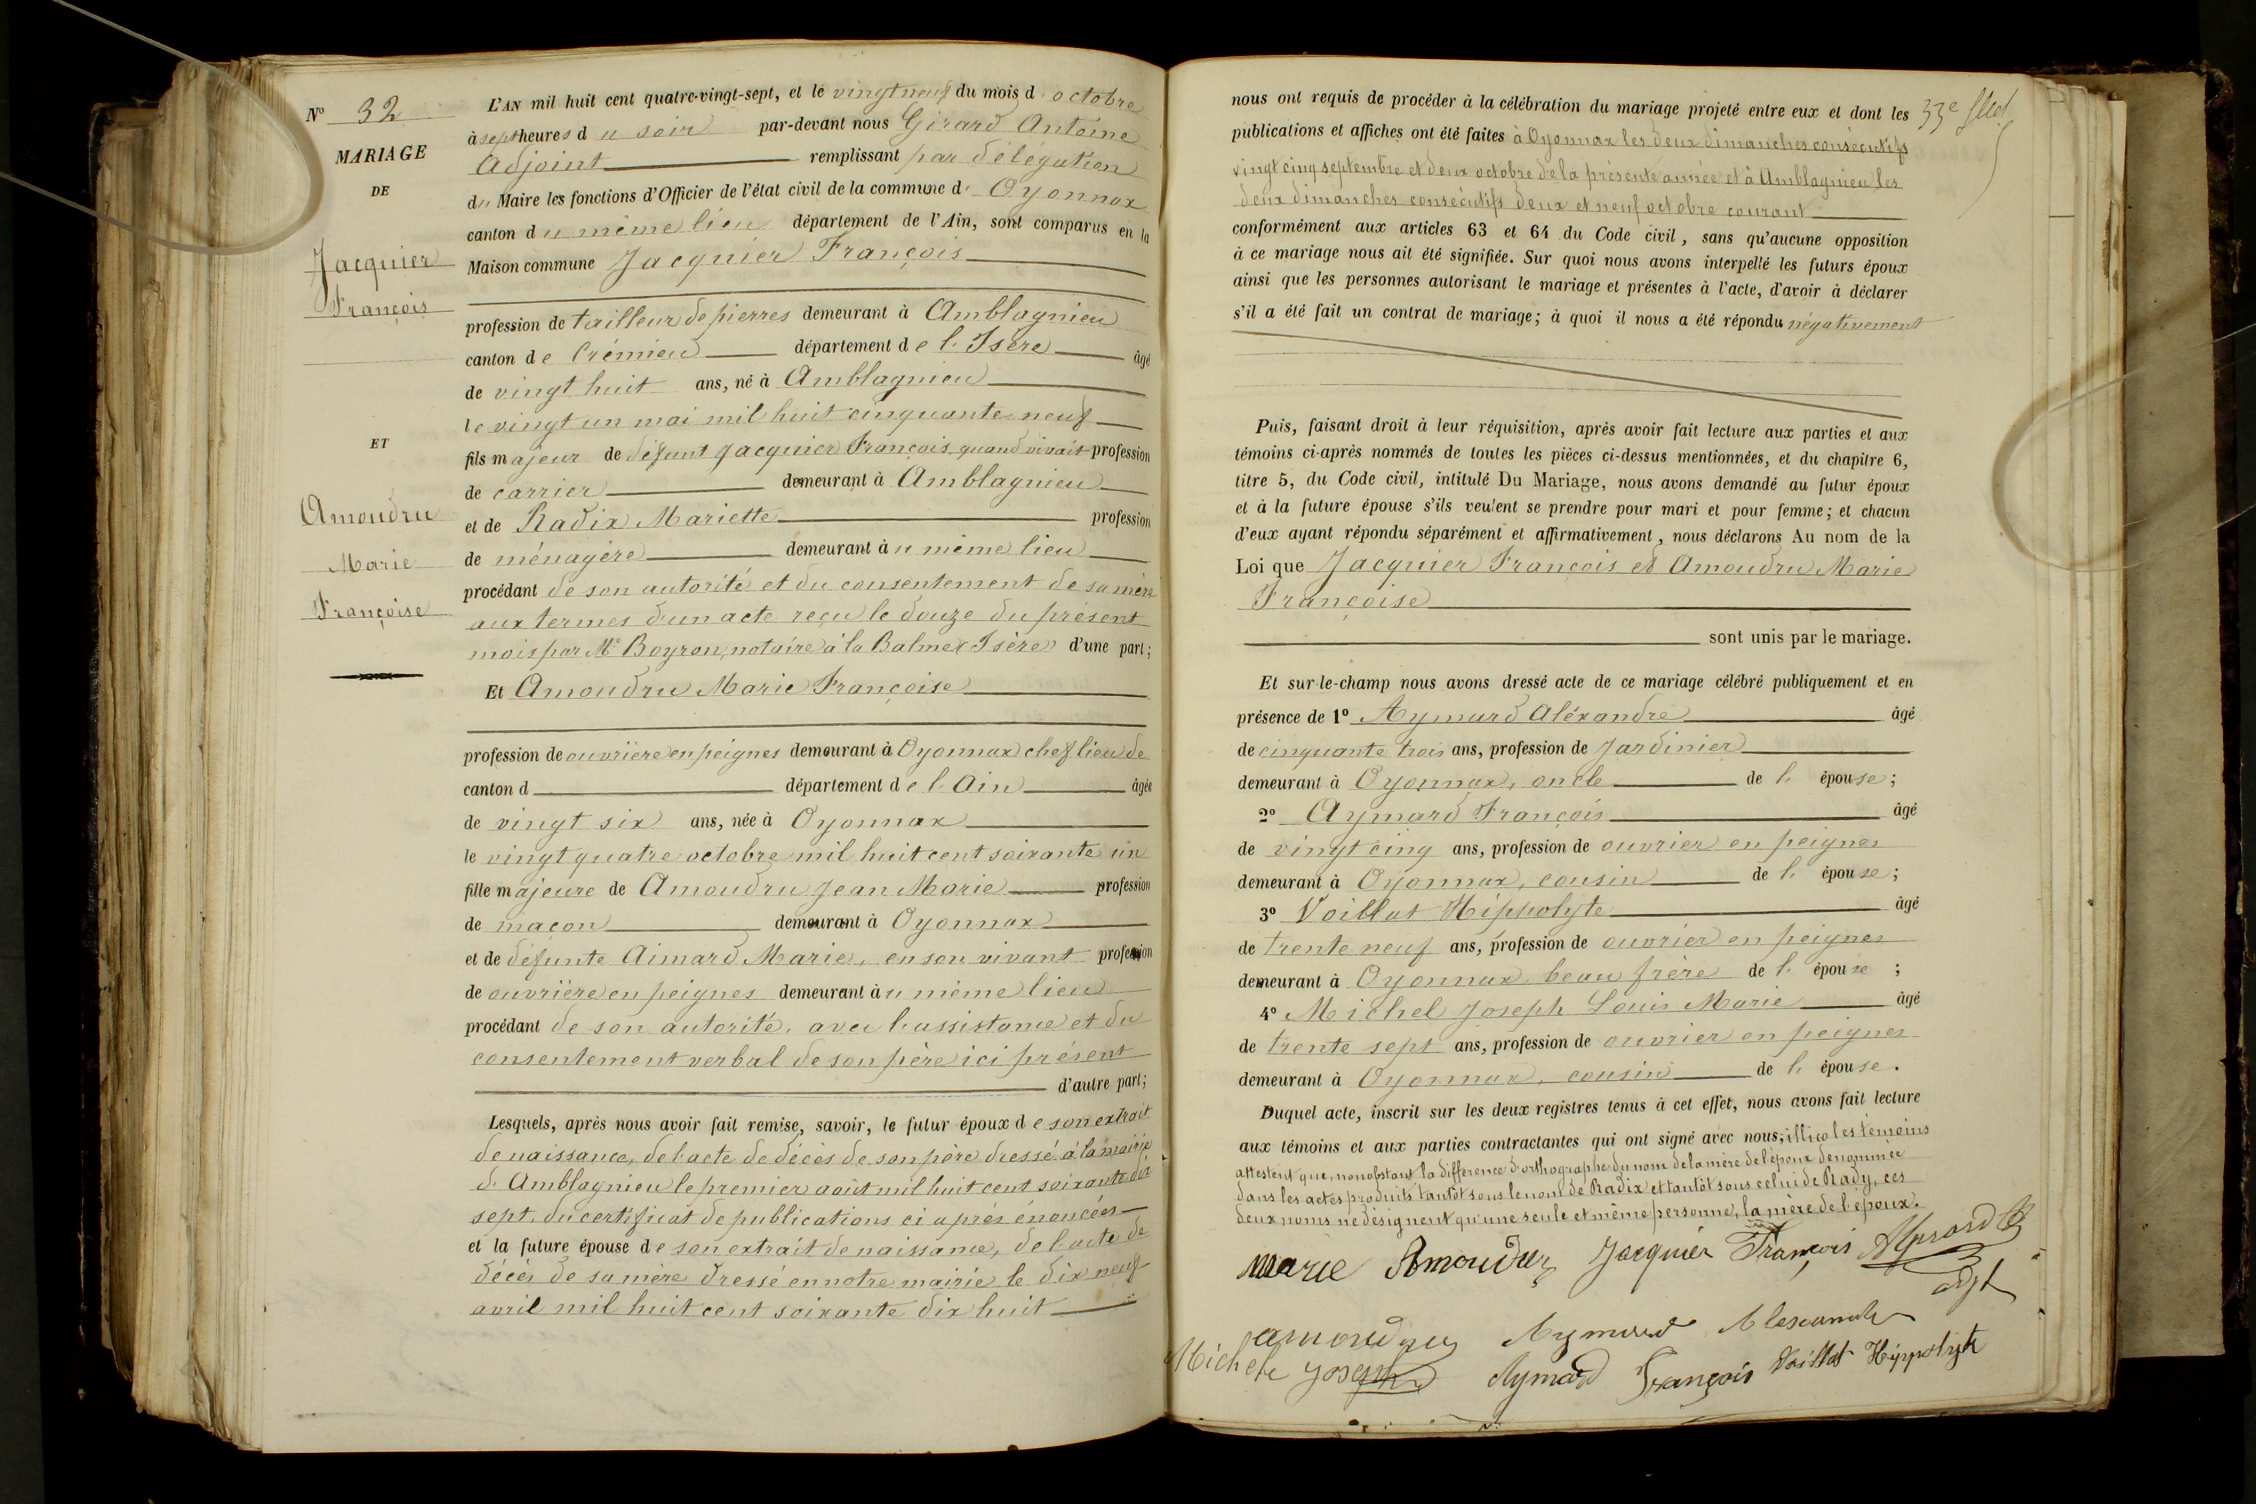 N° 32
MARIAGE
DE
Jacquier
François
ET
Amoudru
Marie
Françoise
L'AN mil huit cent quatre-vingt-sept, et le vingt neuf du mois d'octobre
à sept heures du soir par-devant nous Girard Antoine
Adjoint remplissant par délégation
du Maire les fonctions d'Officier de l'état civil de la commune d'Oyonnax
canton du même lieu département de l'Ain, sont comparus en la
Maison commune Jacquier François
profession de tailleur de pierres demeurant à Amblagnieu
canton de Crémieu département de l'Isère âgé
de vingt huit ans, né à Amblagnieu
le vingt un mai mil huit cinquante neuf
fils majeur de défunt Jacquier François quand vivait profession
de carrier demeurant à Amblagnieu
et de Radix Mariette profession
de ménagère demeurant au même lieu
procédant de son autorité et du consentement de sa mère
aux termes d'un acte reçu le douze du présent
mois par Me Boyron, notaire à la Balme (Isère) d'une part;
Et Amoudru Marie Françoise
profession de ouvrière en peignes demeurant à Oyonnax chef lieu de
canton d département de l'Ain âgée
de vingt six ans, née à Oyonnax
le vingt quatre octobre mil huit cent soixante un
fille majeure de Amoudru Jean Marie profession
de maçon demeurant à Oyonnax
et de défunte Aimard Marie, en son vivant profession
de ouvrière en peignes demeurant au même lieu
procédant de son autorité, avec l'assistance et du
consentement verbal de son père ici présent
d'autre part;
Lesquels, après nous avoir fait remise, savoir, le futur époux de son extrait
de naissance, de l'acte de décès de son père dressé à la mairie
d'Amblagnieu le premier août mil huit cent soixante dix
sept, du certificat de publications ci après énoncées
et la future épouse de son extrait de naissance, de l'acte de
décès de sa mère dressé en notre mairie le dix neuf
avril mil huit cent soixante dix huit
33e
nous ont requis de procéder à la célébration du mariage projeté entre eux et dont les
publications et affiches ont été faites à Oyonnax les deux dimanches consécutifs
vingt cinq septembre et deux octobre de la présente année et à Amblagnieu les
deux dimanches consécutifs deux et neuf octobre courant
conformément aux articles 63 et 64 du Code civil, sans qu'aucune opposition
à ce mariage nous ait été signifiée. Sur quoi nous avons interpellé les futurs époux
ainsi que les personnes autorisant le mariage et présentes à l'acte, d'avoir à déclarer
s'il a été fait un contrat de mariage; à quoi il nous a été répondu négativement
Puis, faisant droit à leur réquisition, après avoir fait lecture aux parties et aux
témoins ci-après nommés de toutes les pièces ci-dessus mentionnées, et du chapitre 6,
titre 5, du Code civil, intitulé Du Mariage, nous avons demandé au futur époux
et à la future épouse s'ils veulent se prendre pour mari et pour femme; et chacun
d'eux ayant répondu séparément et affirmativement, nous déclarons Au nom de la
Loi que Jacquier François et Amoudru Marie
Françoise
sont unis par le mariage.
Et sur-le-champ nous avons dressé acte de ce mariage célébré publiquement et en
présence de 1° Aymard Aléxandre âgé
de cinquante trois ans, profession de Jardinier
demeurant à Oyonnax, oncle de l'épouse;
2° Aymard François âgé
de vingt cinq ans, profession de ouvrier en peignes
demeurant à Oyonnax, cousin de l'épouse;
3° Voillat Hippolyte âgé
de trente neuf ans, profession de ouvrier en peignes
demeurant à Oyonnax, beau frère de l'épouse;
4° Michel Joseph Louis Marie âgé
de trente sept ans, profession de ouvrier en peignes
demeurant à Oyonnax, cousin de l'épouse.
Duquel acte, inscrit sur les deux registres tenus à cet effet, nous avons fait lecture
aux témoins et aux parties contractantes qui ont signé avec nous; illico les témoins
attestent que, nonobstant la différence d'orthographe du nom de la mère de l'époux dénommée
dans les actes produits tantôt sous le nom de Radix et tantôt sous celui de Rady, ces
deux noms ne désignent qu'une seule et même personne, la mère de l'époux.
Marie Amoudru Jacquier François AGirard
adjt
amoudru Aymard Alexandre
Michele Joseph Aymard François Voillat Hippolyte